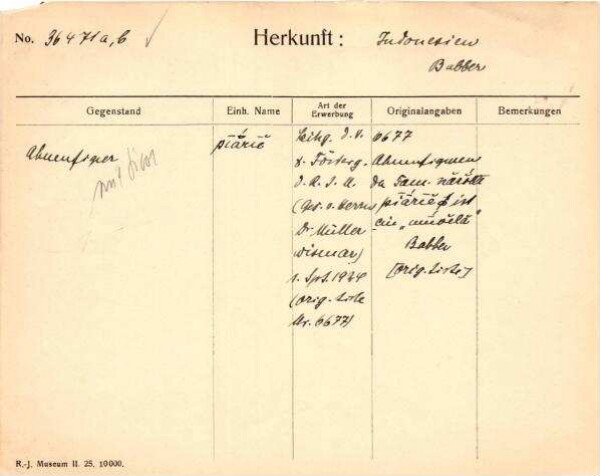 No. 36471a,b
Herkunft: Indonesien
Babber
Gegenstand
Einh. Name
Art der Erwerbung
Originalangaben
Bemerkungen
Ahnenfigur
mit
piárië
Leihg. d. V.
z. Förderg.
d. R. J. M.
(Ges. v. Herrn
Dr Müller
Wismar)
1. Spt. 1924
(orig. Liste
Nr. 6677)
6677
Ahnenfiguren
da Fam.
piárië ist
ein
Babber
[orig. Liste]
R.-J. Museum II. 25. 10000.